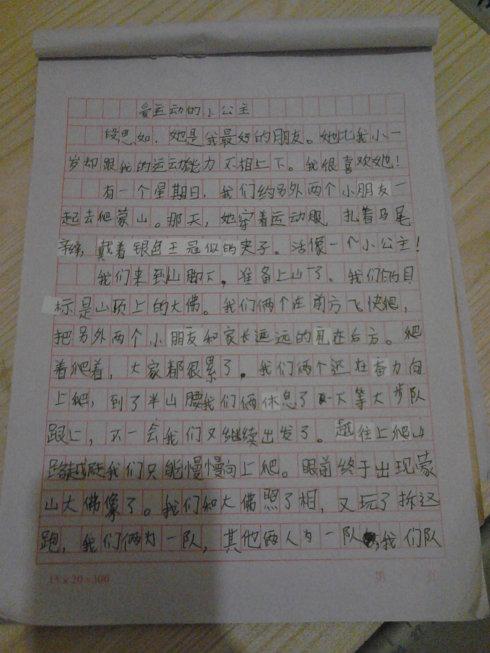 爱运动的小公主
段思如，她是我最好的朋友。她比我小一
岁却跟我的运动能力不相上下。我很喜欢她！
有一个星期日，我们约另外两个小朋友一
起去爬蒙山。那天，她穿着运动服，扎着马尾
辫，戴着银色王冠似的夹子。活像一个小公主！
我们来到山脚下，准备上山了、我们俩目
标是山顶上的大佛。我们俩个在前方飞快爬，
把另外两个小朋友和家长远远的甩在后方。爬
着爬着，大家都很累了。我们两个还在奋力向
上爬，到了半山腰我们俩休息了一下等大步队
跟上，不一会我们又继续出发了。越往上爬山
路越陡我们只能慢慢向上爬。眼前终于出现蒙
山大佛像了。我们和大佛照了相，又玩了拆这
跑，我们俩为一队，其他俩人为一队我们队
15×20=300
第 页